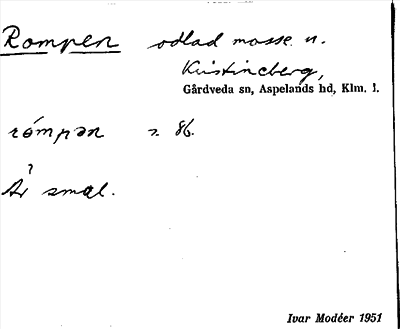 Rompen odlad mosse. u.
Kristineberg,
Gårdveda sn, Aspelands hd, Klm. l.
rómpən s. 86.
?
Är smal.
Ivar Modéer 1951